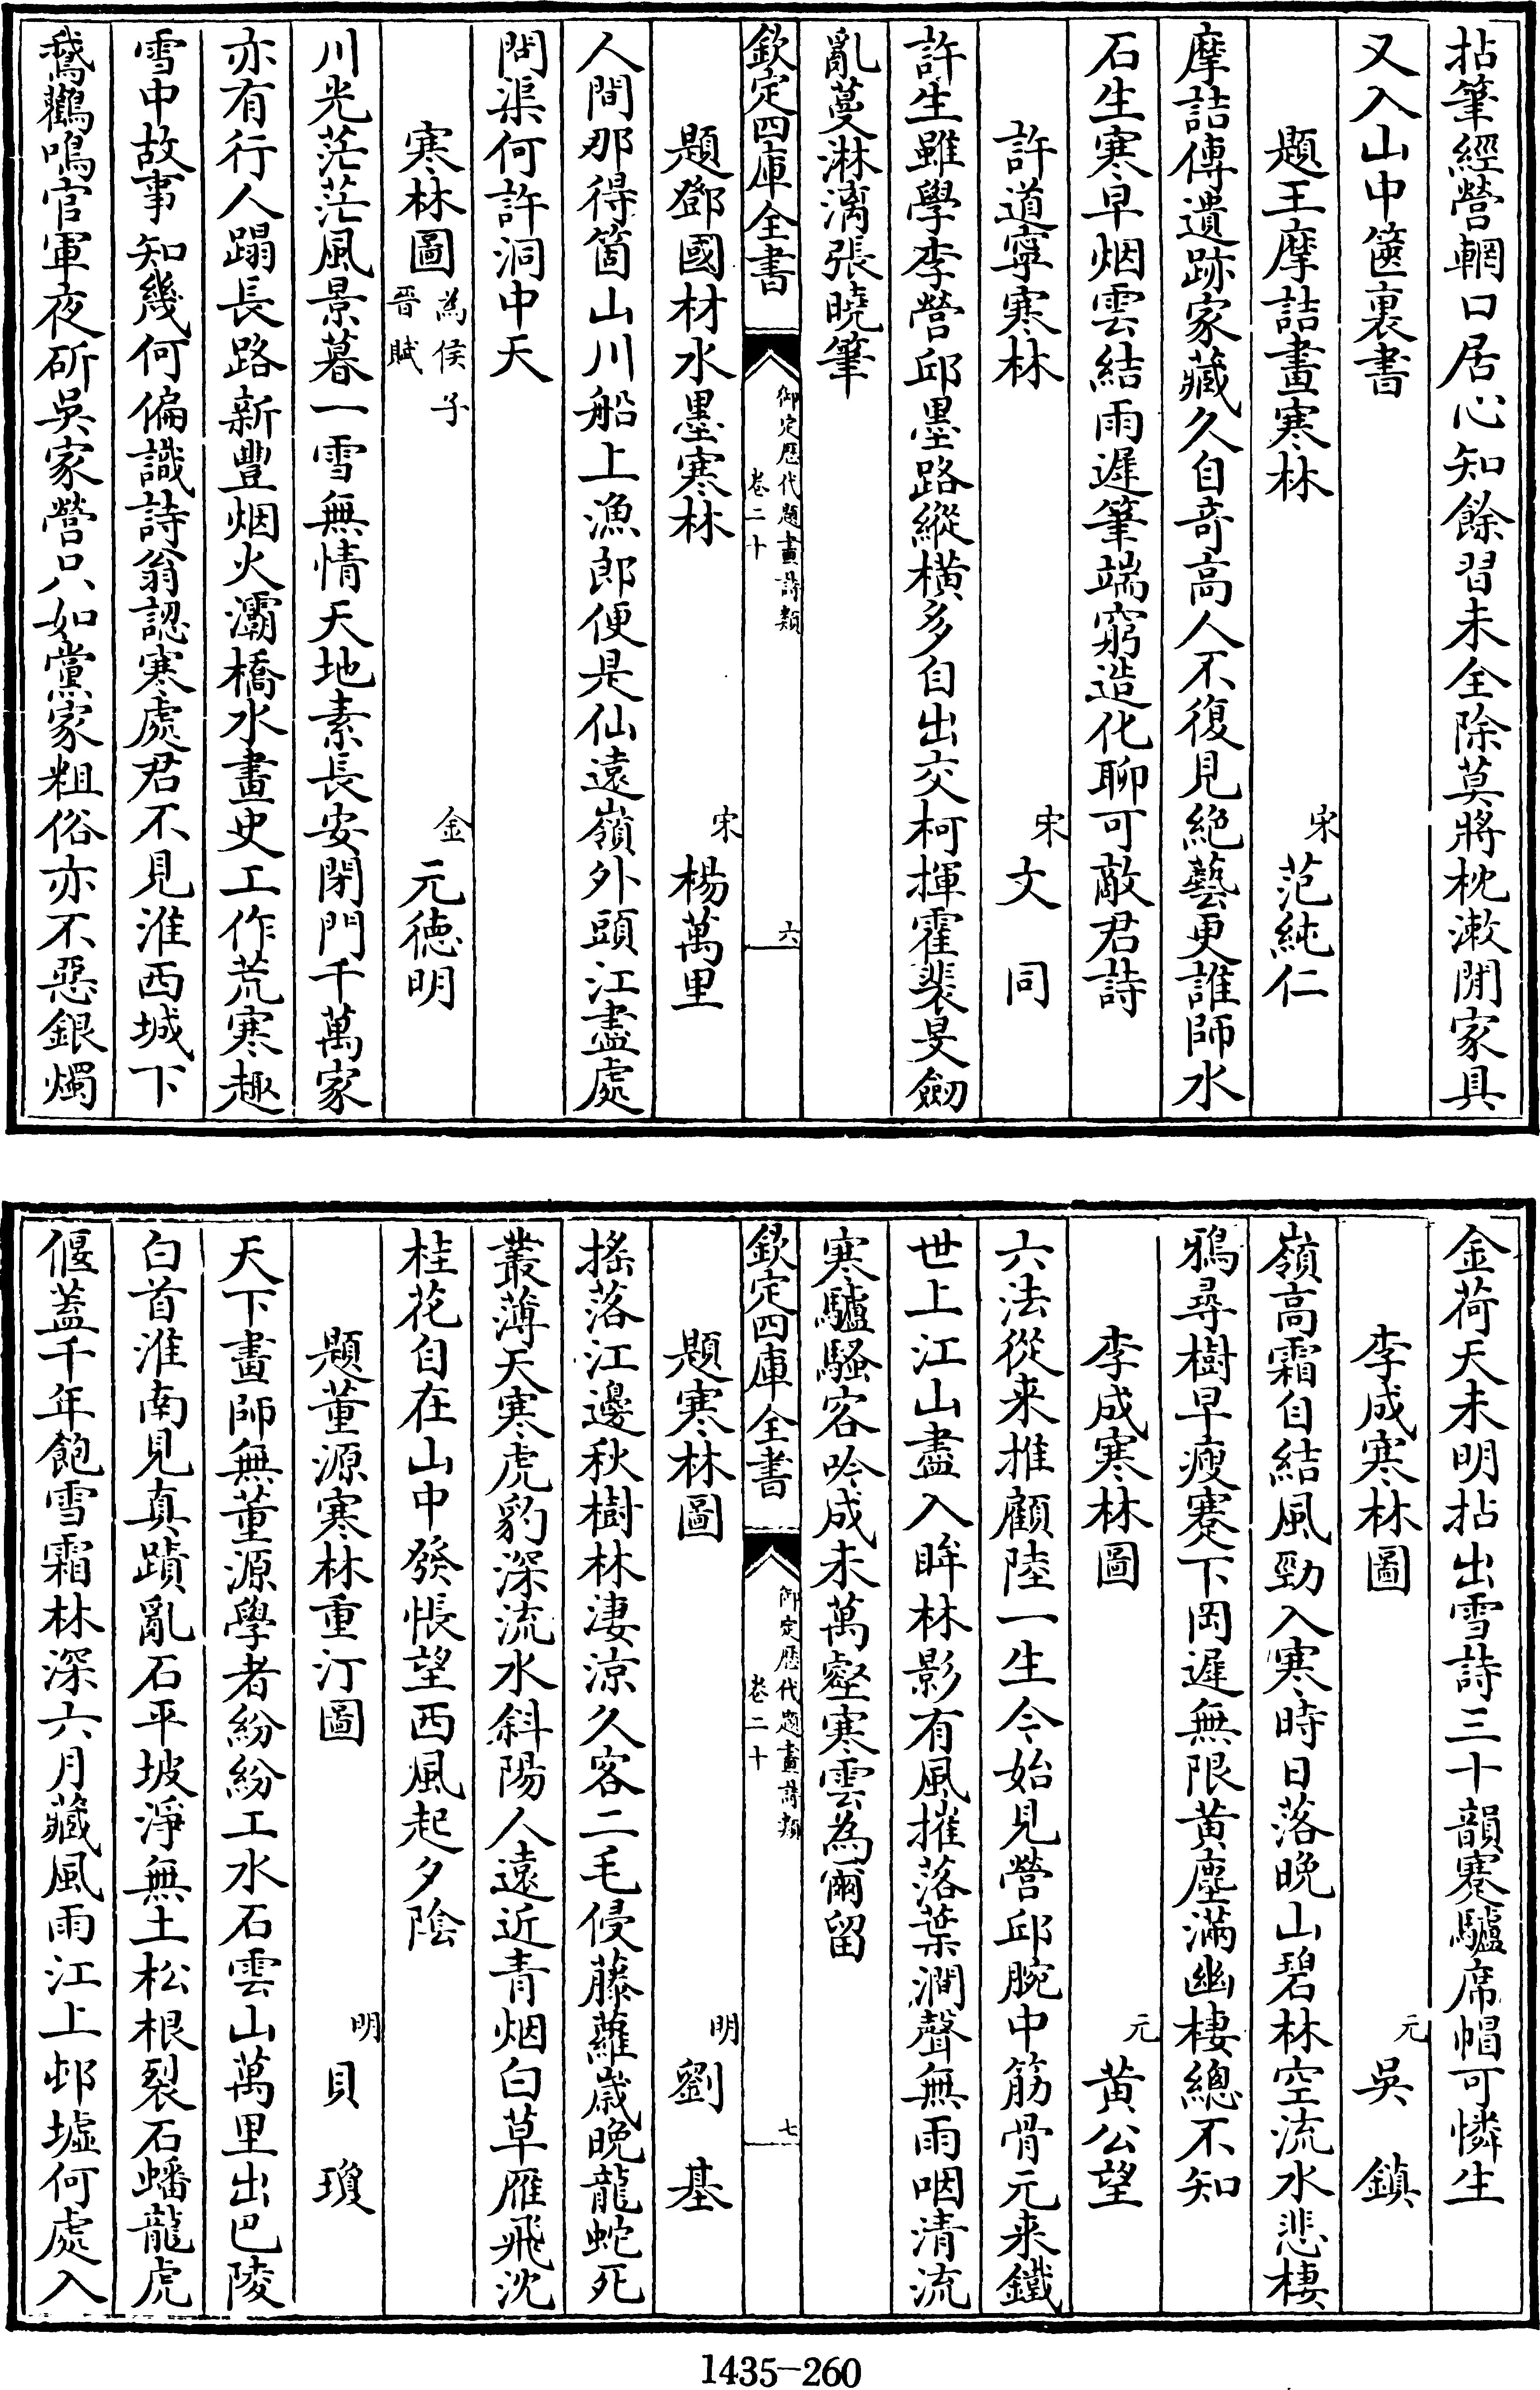 拈筆經營輞口居心知餘習未全除莫將枕漱閒家具
又入山中篋裏書
題王摩詰畫寒林
宋范純仁
摩詰傳遺跡家藏久自奇高人不復見絶藝更誰師水
石生寒早烟雲結雨遲筆端窮造化聊可敵君詩
許道寧寒林
宋文同
許生雖學李營邱墨路縱橫多自出交柯揮霍裴旻劒
亂蔓淋漓張曉筆
欽定四庫全書
御定歷代題畫詩類
卷二十
六
題鄧國材水墨寒林
宋楊萬里
人間那得箇山川船上漁郎便是仙遠嶺外頭江盡處
問渠何許洞中天
寒林圖
為侯子
晉賦
金元德明
川光茫茫風景暮一雪無情天地素長安閉門千萬家
亦有行人蹋長路新豐烟火灞橋水畫史工作荒寒趣
雪中故事知幾何偏識詩翁認寒處君不見淮西城下
鵞鸛鳴官軍夜斫吳家營只如黨家粗俗亦不惡銀燭
金荷天未明拈出雪詩三十韻蹇驢席帽可憐生
李成寒林圖
元吳鎮
嶺高霜自結風勁入寒時日落晚山碧林空流水悲棲
鴉尋樹早瘦蹇下岡遲無限黄塵滿幽棲總不知
李成寒林圖
元黄公望
六法從来推顧陸一生今始見營邱腕中筋骨元来鐵
世上江山盡入眸林影有風摧落葉澗聲無雨咽清流
寒驢騷客吟成未萬壑寒雲為爾留
欽定四庫全書
御定歷代題畫詩類
卷二十
七
題寒林圖
明劉基
搖落江邊秋樹林淒涼久客二毛侵藤蘿歲晚龍蛇死
叢薄天寒虎豹深流水斜陽人遠近青烟白草雁飛沈
桂花自在山中發悵望西風起夕陰
題董源寒林重汀圖
明貝瓊
天下畫師無董源學者紛紛工水石雲山萬里出巴陵
白首淮南見真蹟亂石平坡淨無土松根裂石蟠龍虎
偃蓋千年飽雪霜林深六月藏風雨江上邨墟何處入
1435-260